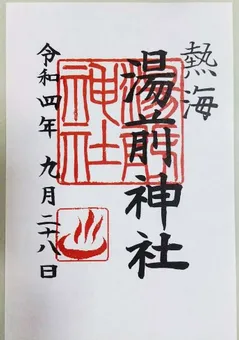 熱海
湯前神社
令和四年 九月二十八日
湯前
神社